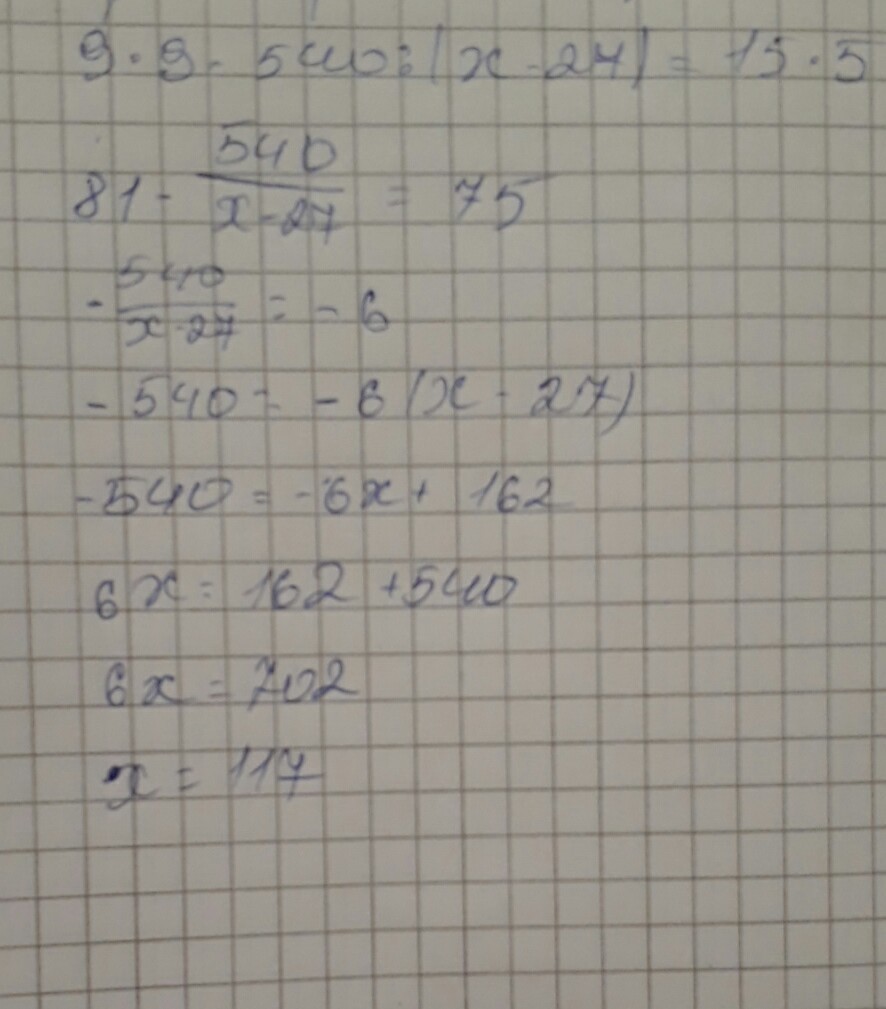 9·9-540:(x-27)=15·5
81-540/(x-27)=75
-540/(x-27)=-6
-540=-6(x-27)
-540=-6x+162
6x=162+540
6x=702
x=117